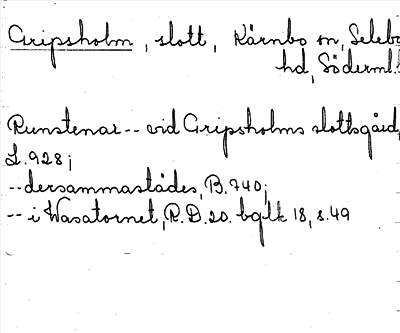 Gripsholm, slott, Kärnbo sn, Selebo
hd, Söderml.
Runstenar -- vid Gripsholms slottsgård,
L.928;
-- dersammastädes, B.740;
-- i Wasatornet, R.D.20. bglk 18, s.49